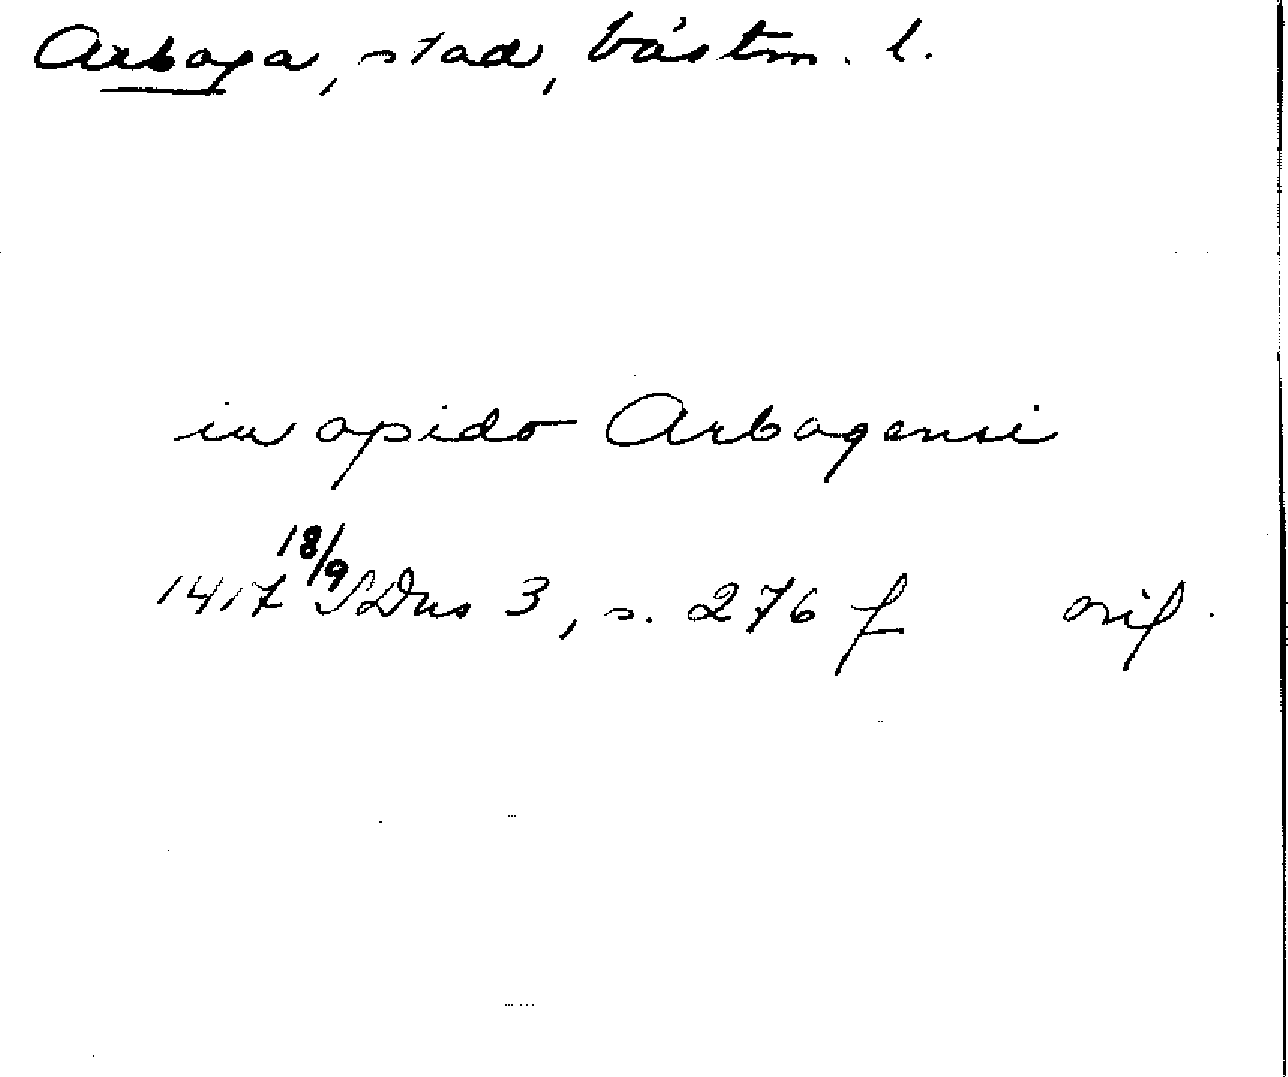 Arboga, stad, Västm. l.
in opido Arbogensi
1417 18/9 SDns 3, s. 276 f orig.